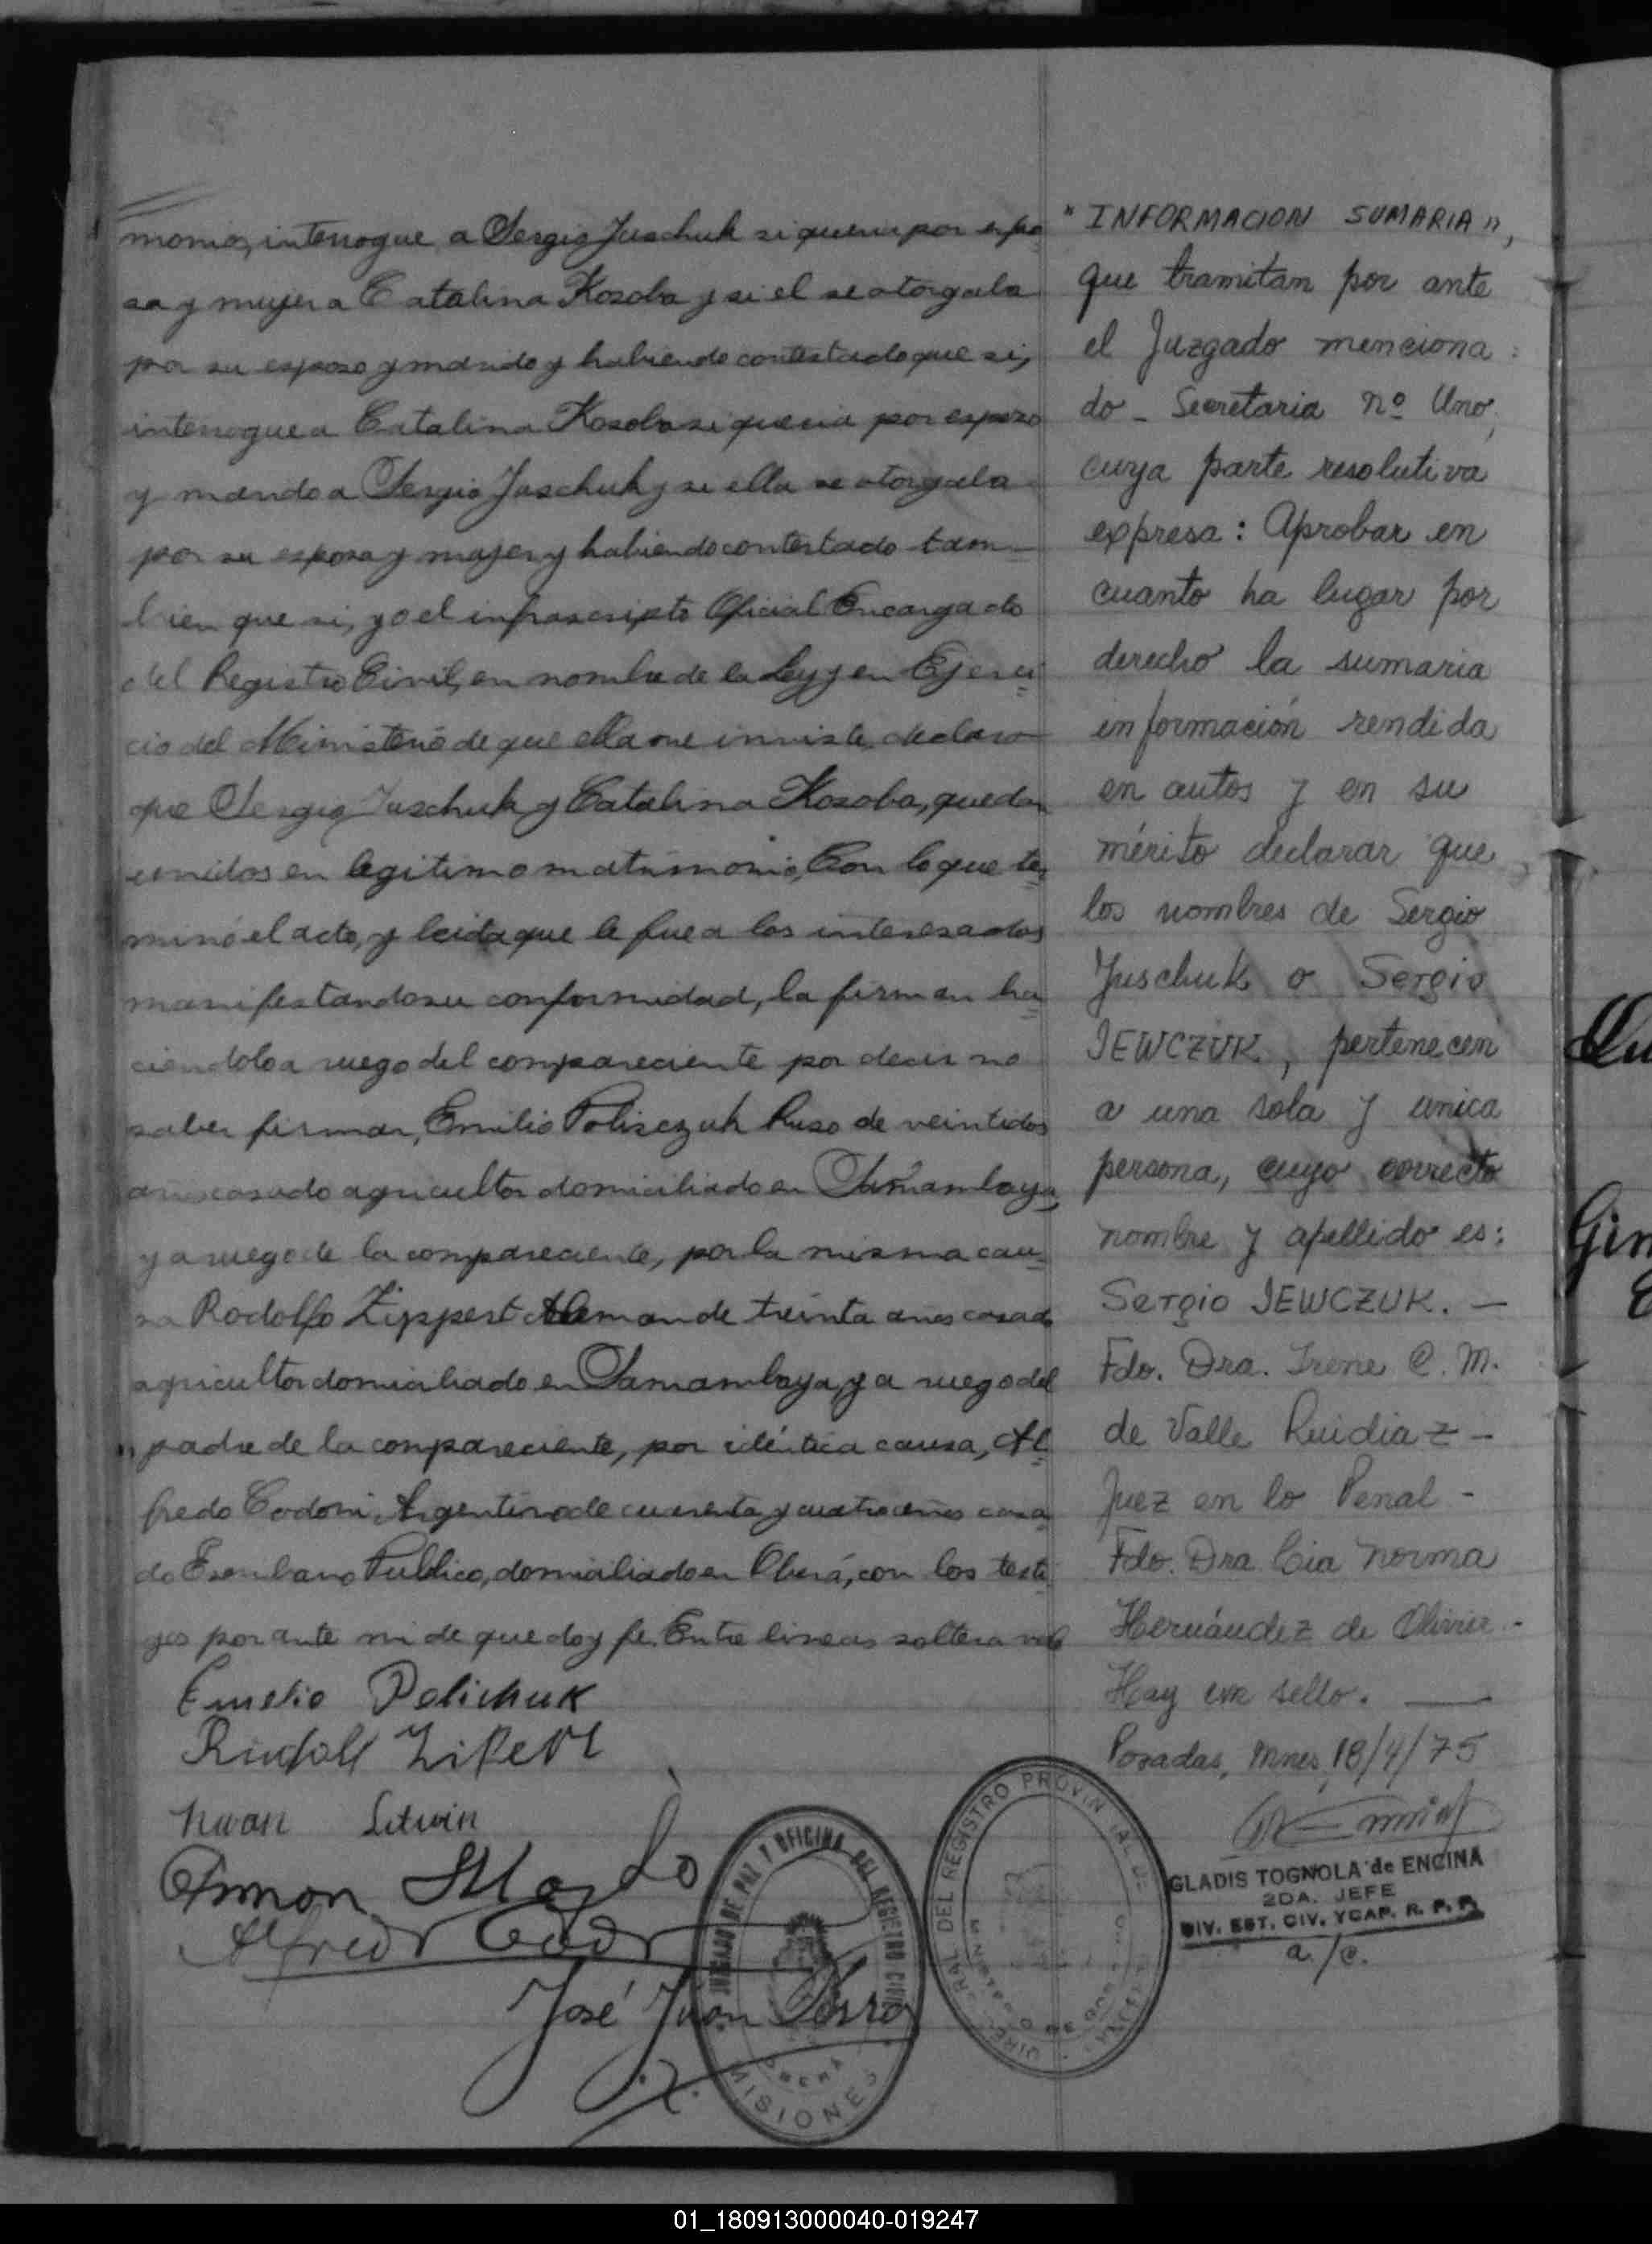 monio, interrogue a Sergio Juschuk si queria por espo
sa y mujer a Catalina Kozoba y si el se otorgaba
por su esposo y marido y habiendo contestado que si,
interrogue a Catalina Kosoba si queria por esposo
y marido a Sergio Juschuk y si ella se otorgaba
por su esposa y mujer y habiendo contestado tam
bien que si, yo el infrascripto Oficial Encargado
del Registro Civil, en nombre de la Ley y en Ejerci
cio del Ministerio de que ella me inviste, declaro
que Sergio Juschuk y Catalina Kosoba, quedan
unidos en legitimo matrimonio, Con lo que ter
minó el acto, y leida que le fue a los interesados
manifestando su conformidad, la firman ha
ciendolo a ruego del compareciente por decir no
saber firmar, Emilio Polisczuk Ruso de veintidos
años casado agricultor domiciliado en Samambaya,
y a ruego de la compareciente, por la misma cau
sa Rodolfo Zippert Aleman de treinta años casado
agricultor domiciliado en Samambaya, y a ruego del
padre de la compareciente, por idéntica causa, Al
fredo Codoni, Argentino de cuarenta y cuatro años casa
do Escribano Publico, domiciliado en Oberá, con los testi
gos por ante mi de que doy fe. Entre lineas soltera vale
Emelio Polichuk
Rudolf Zipert
Litwin
Simon
Alfredo
José Juan
J.P.
JUZGADO DE PAZ Y OFICINA DEL REGISTRO CIVIL
OBERÁ
MISIONES
"INFORMACION SUMARIA",
que tramitan por ante
el Juzgado menciona
do - Secretaria nº Uno,
cuya parte resolutiva
expresa: Aprobar en
cuanto ha lugar por
derecho la sumaria
información rendida
en autos y en su
mérito declarar que
los nombres de Sergio
Juschuk o Sergio
IEWCZUK, pertenecen
a una sola y unica
persona, cuyo correcto
nombre y apellido es:
Sergio IEWCZUK. —
Fdo. Dra. Irene C. M.
de Valle Ruidiaz -
Juez en lo Penal -
Fdo. Dra Norma
Hernández de Olivier -
Hay un sello. —
Posadas, Mnes, 18/4/75
GLADIS TOGNOLA de ENCINA
2DA. JEFE
DIV. EST. CIV. YCAP. R. P. P.
a./c.
REGISTRO PROVINCIAL DE
01_180913000040-019247